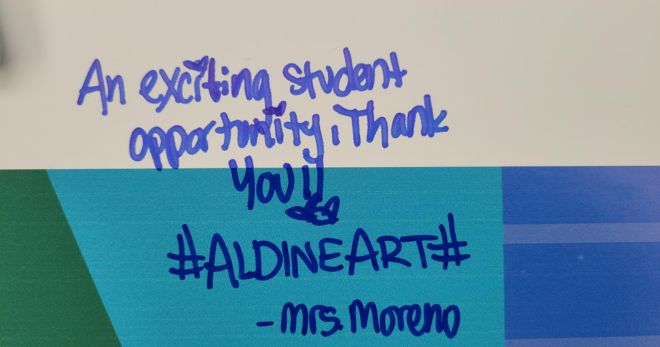 An exciting student
opportunity, Thank
You!!
#ALDINEART#
- Mrs. Moreno